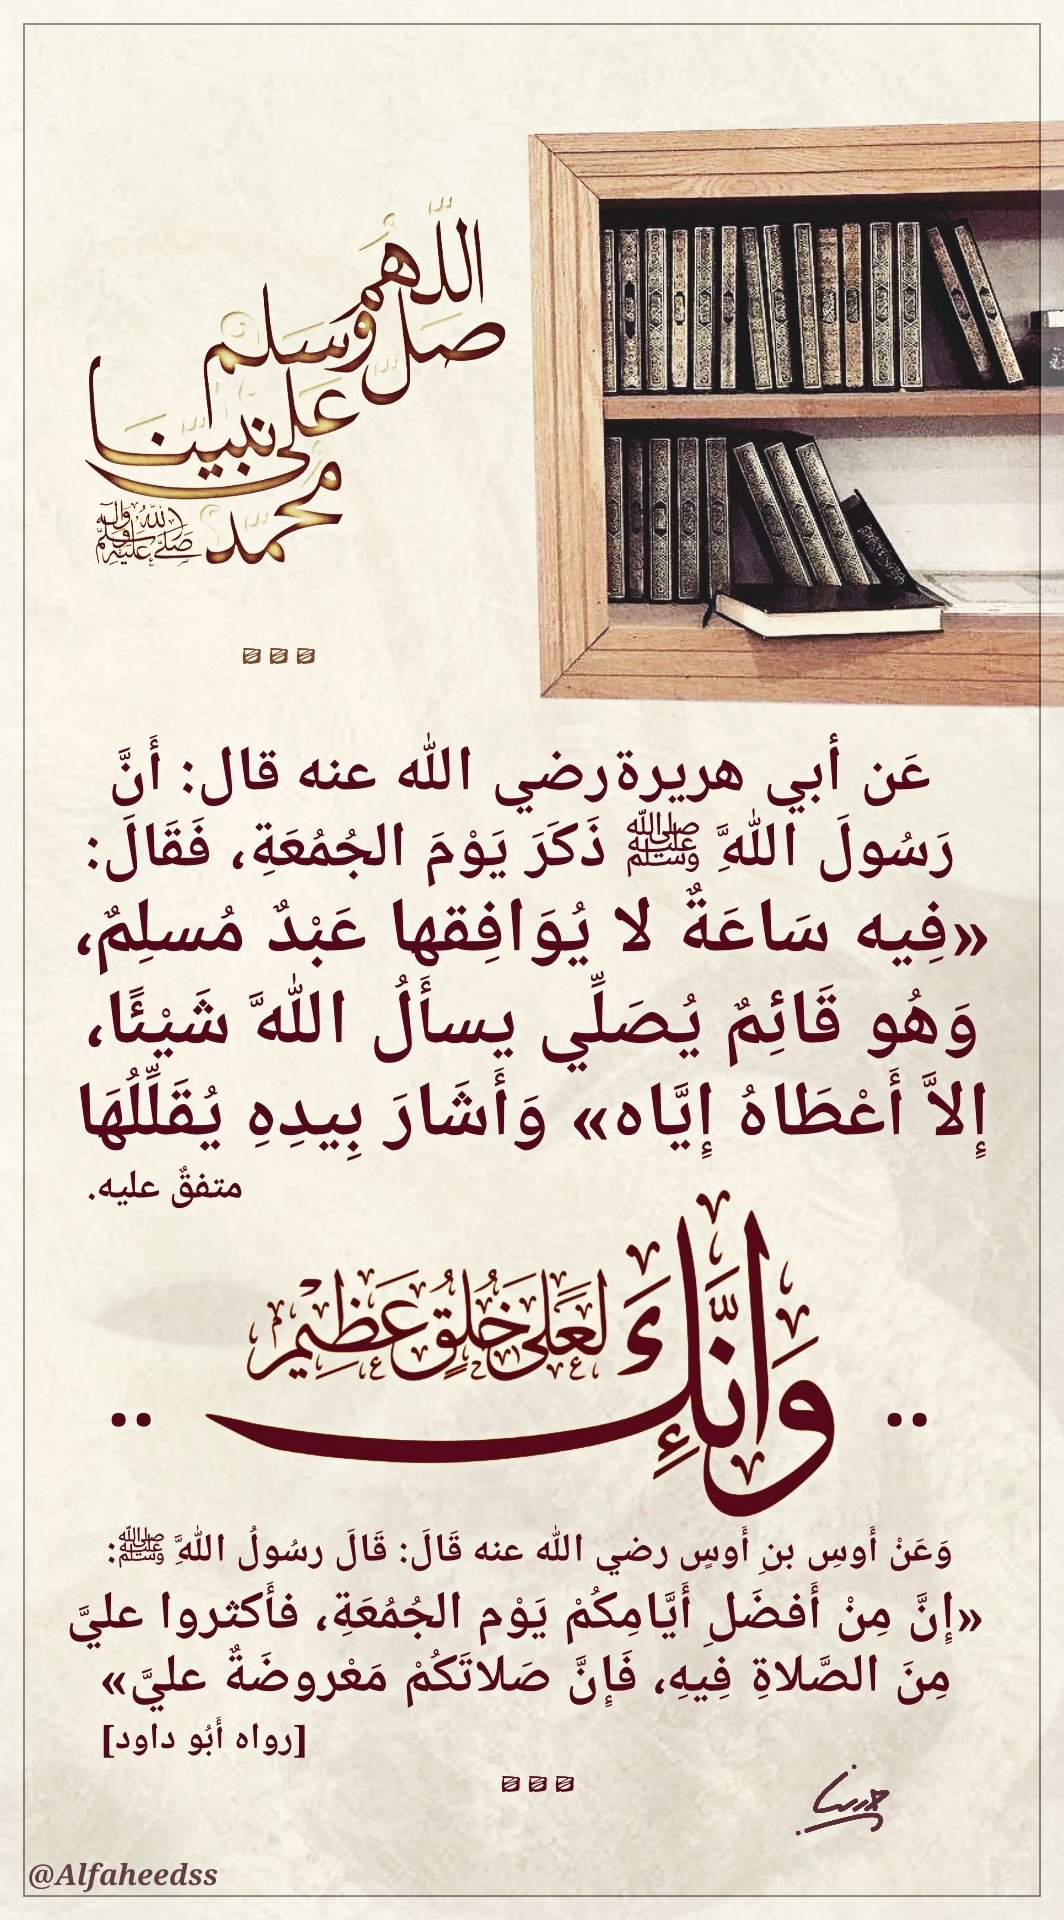 اللَّهُمَّ
صَلِّ وَسَلِّم
عَلَى نَبِيِّنَا
مُحَمَّد ﷺ
عَن أبي هريرة رضي الله عنه قال: أَنَّ
رَسُولَ اللهَِّ ﷺ ذَكَرَ يَوْمَ الجُمُعَةِ، فَقَالَ:
«فِيه سَاعَةٌ لا يُوَافِقها عَبْدٌ مُسلِمٌ،
وَهُو قَائِمٌ يُصَلِّي يسأَلُ اللهَّ شَيْئًا،
إِلاَّ أَعْطَاهُ إِيَّاه» وَأَشَارَ بِيدِهِ يُقَلِّلُهَا
متفقٌ عليه.
وَإِنَّكَ لَعَلَى خُلُقٍ عَظِيمٍ
وَعَنْ أَوسِ بنِ أَوسٍ رضي الله عنه قَالَ: قَالَ رسُولُ اللهَِّ ﷺ:
«إِنَّ مِنْ أَفضَلِ أَيَّامِكُمْ يَوْم الجُمُعَةِ، فأَكثروا عليَّ
مِنَ الصَّلاةِ فِيهِ، فَإِنَّ صَلاتَكُمْ مَعْروضَةٌ عليَّ»
[رواه أبُو داود]
@Alfaheedss